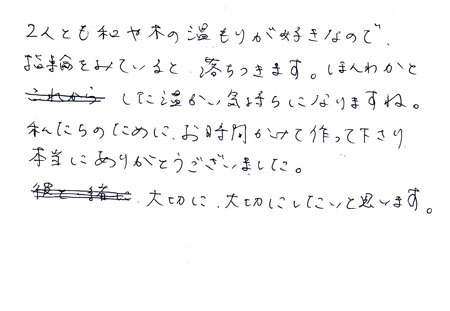 2人とも和や木の温もりが好きなので、
指輪をみていると、落ちつきます。ほんわかと
これから した温かい気持ちになりますね。
私たちのために、お時間かけて作って下さり
本当にありがとうございました。
大切に、大切にしたいと思います。